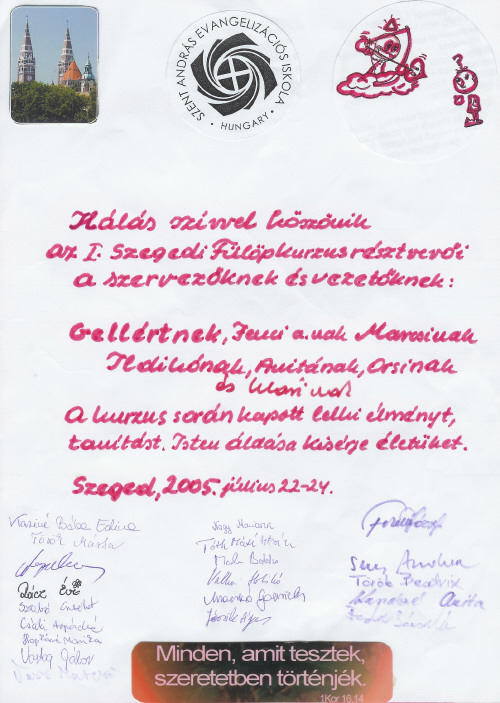 SZENT ANDRÁS EVANGELIZÁCIÓS ISKOLA
• HUNGARY •
?
Hálás szívvel köszönik
az I. Szegedi Fülöpkurzus résztvevői
a szervezőknek és vezetőknek:
Gellértnek, Jenci a.nak Marcsinak
Ildikónak, Anitának, Orsinak
és Marinak
A kurzus során kapott lelki élményt,
tanítást. Isten áldása kísérje életüket.
Szeged, 2005. július 22-24.
Edina
Török Márta
Rácz Éva
Szabó
Csáki Árpádné
Mónika
Vastag Gábor
Nagy Mariann
Tóth
Ildikó
Gabriella
Ágnes
Andrea
Török Beatrix
Anita
Minden, amit tesztek,
szeretetben történjék.
1Kor 16,14